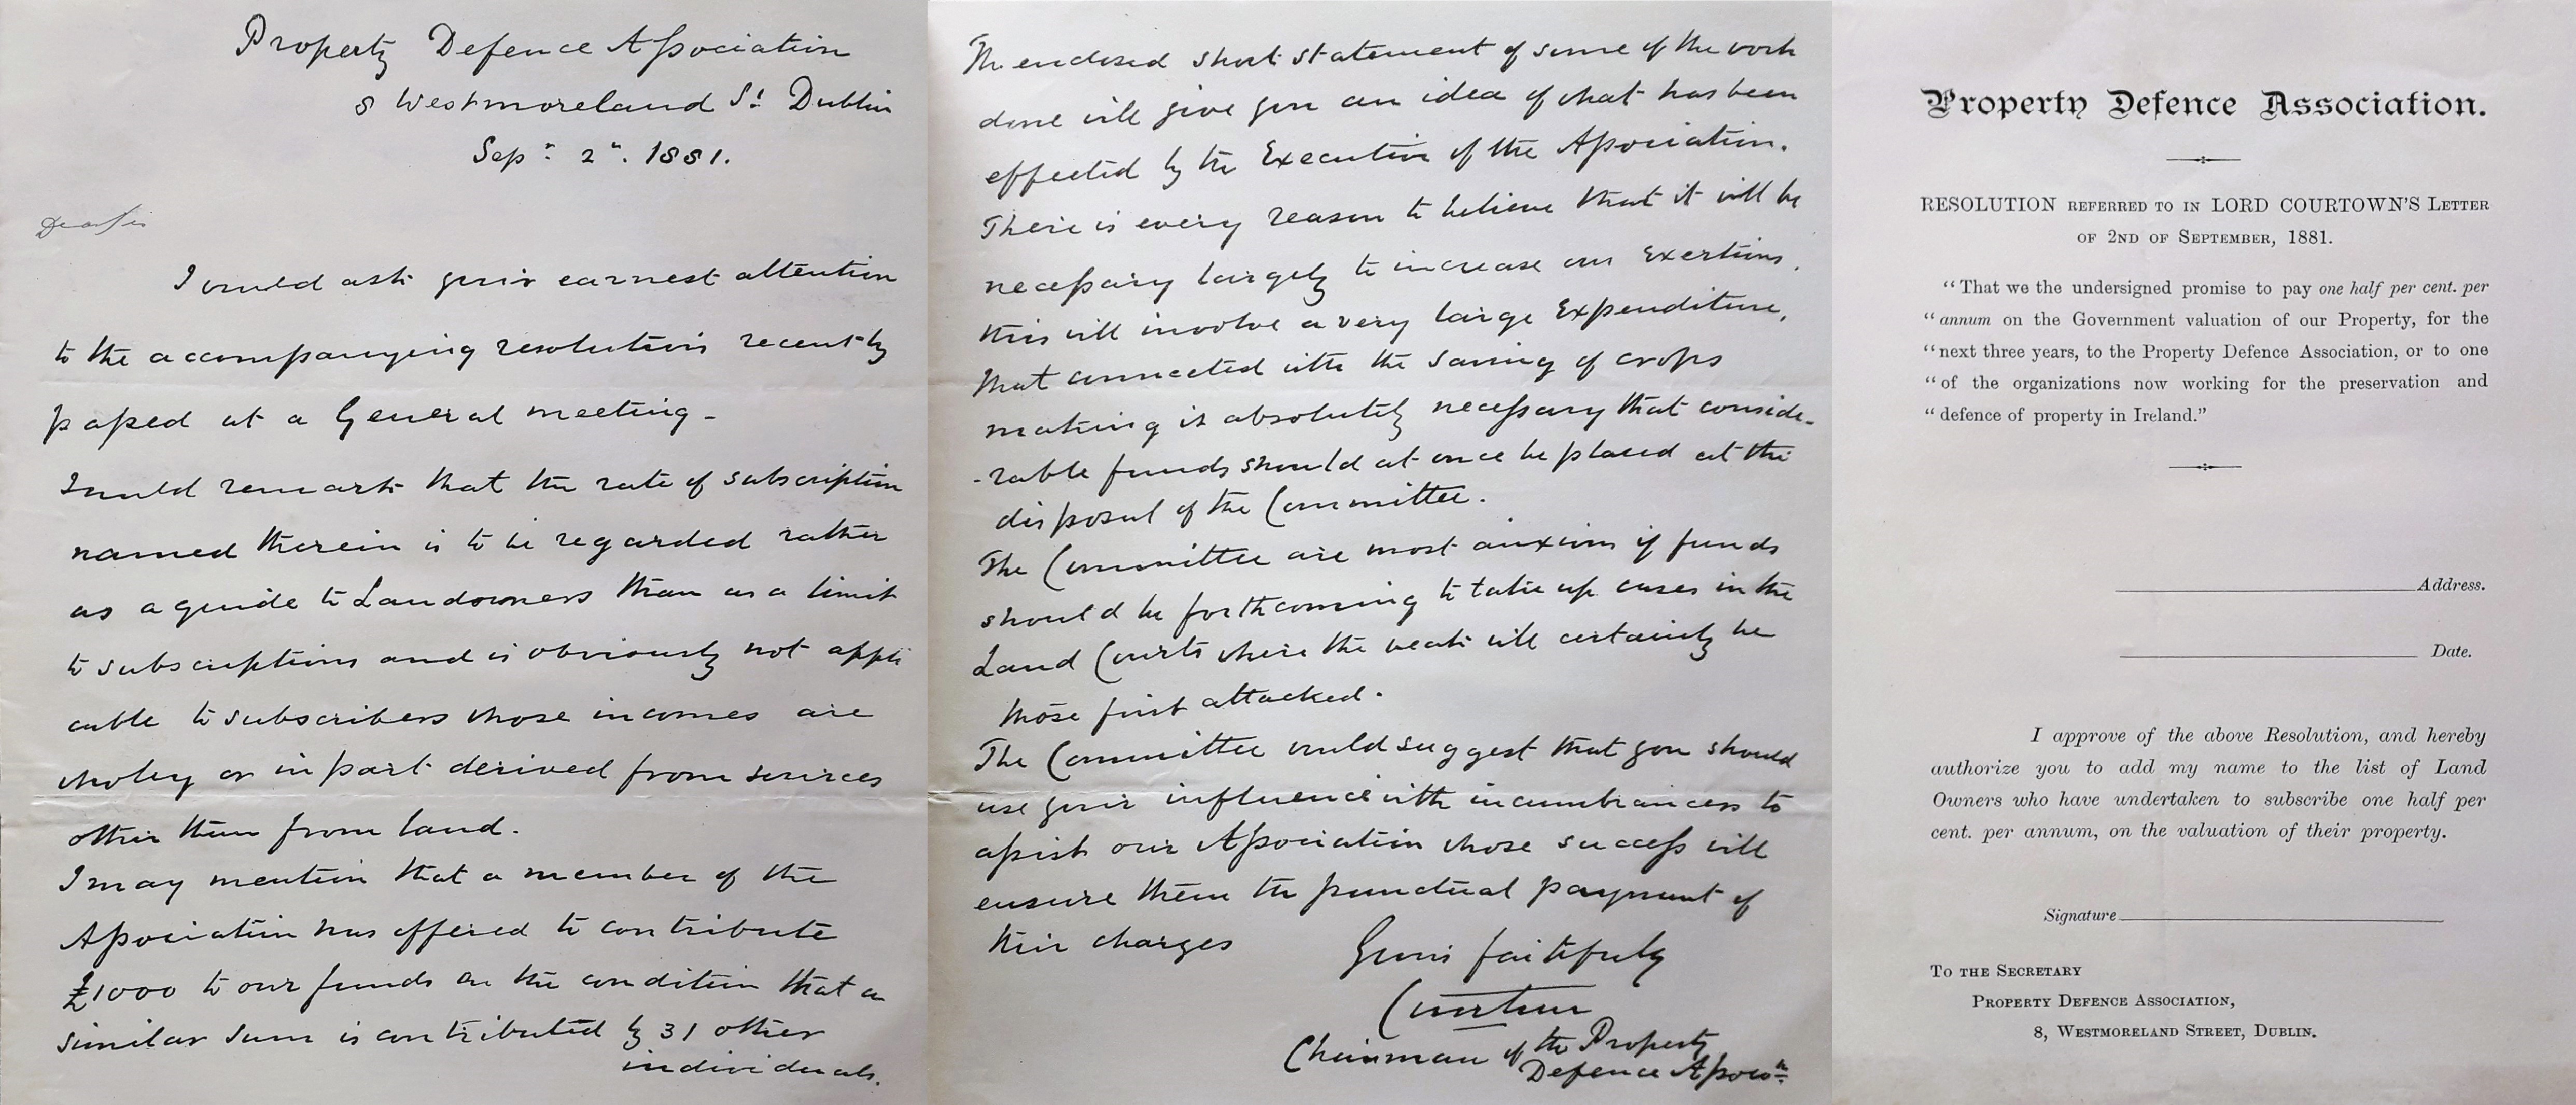 Property Defence Association
8 Westmoreland St Dublin
Sepr 2n. 1881.
Dear Sir
I would ask your earnest attention
to the accompanying resolution recently
passed at a General meeting -
I would remark that the rate of subscription
named therein is to be regarded rather
as a guide to Landowners than as a limit
to subscriptions and is obviously not appli
cable to subscribers whose incomes are
wholey or in part derived from sources
other than from land.
I may mention that a member of the
Association has offered to contribute
£1000 to our funds on the condition that a
similar sum is contributed by 31 other
individuals.
The enclosed short statement of some of the work
done will give you an idea of what has been
effected by the Executive of the Association.
There is every reason to believe that it will be
necessary largely to increase our exertions,
this will involve a very large Expenditure,
that connected with the saving of crops
making it absolutely necessary that conside-
-rable funds should at once be placed at the
disposal of the Committee.
The Committee are most anxious if funds
should be forthcoming to take up cases in the
Land Courts where the weak will certainly be
those first attacked.
The Committee would suggest that you should
use your influence with incumbrancers to
assist our Association whose success will
ensure them the punctual payment of
their charges
Yours faithfully
Courtown
Chairman of the Property
Defence Associn
Property Defence Association.
RESOLUTION REFERRED TO IN LORD COURTOWN'S LETTER
OF 2ND OF SEPTEMBER, 1881.
"That we the undersigned promise to pay one half per cent. per
"annum on the Government valuation of our Property, for the
"next three years, to the Property Defence Association, or to one
"of the organizations now working for the preservation and
"defence of property in Ireland."
Address.
Date.
I approve of the above Resolution, and hereby
authorize you to add my name to the list of Land
Owners who have undertaken to subscribe one half per
cent. per annum, on the valuation of their property.
Signature
TO THE SECRETARY
PROPERTY DEFENCE ASSOCIATION,
8, WESTMORELAND STREET, DUBLIN.